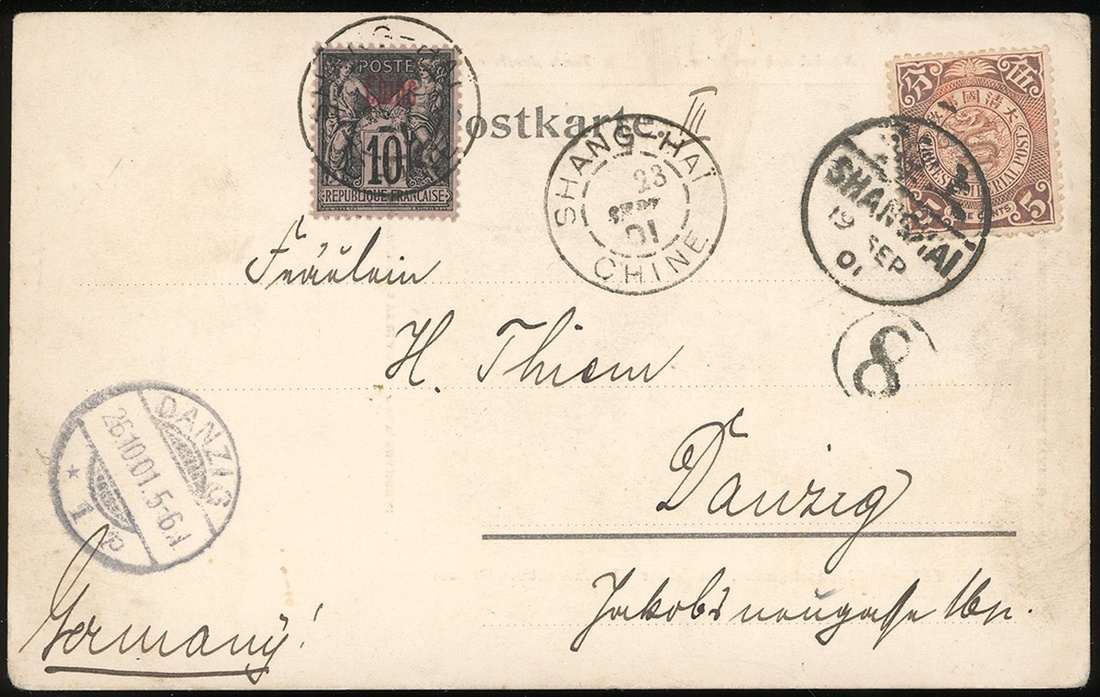 POSTE
Chine
10
RÉPUBLIQUE FRANÇAISE
Postkarte.
III
SHANG-HAÏ
23
SEPT
01
CHINE
大清國郵政
伍
分
CHINESE IMPERIAL POST
5 FIVE CENTS 5
SHANGHAI
19 SEP
01
8
Fräulein
H. Thiem
Danzig
DANZIG
26.10.01.5-6N
* 1 d
Germany!